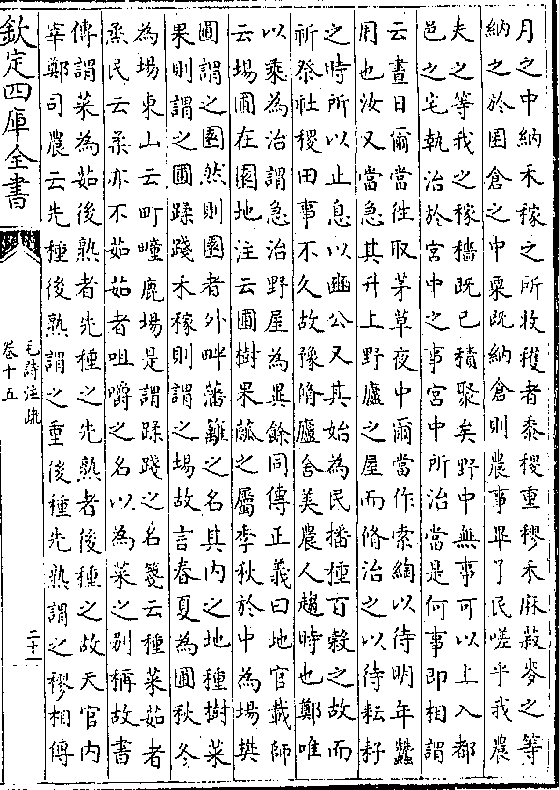 月之中納禾稼之所收穫者黍稷重穋禾麻菽麥之等
納之於囷倉之中粟既納倉則農事畢了民嗟乎我農
夫之等我之稼穡既已積聚矣野中無事可以上入都
邑之宅執治於宮中之事宮中所治當是何事即相謂
云晝日爾當往取茅草夜中爾當作索綯以待明年蠶
用也汝又當急其升上野廬之屋而脩治之以待耘耔
之時所以止息以豳公又其始為民播種百穀之故而
祈祭社稷田事不久故豫脩廬舍美農人趨時也鄭唯
以乘為治謂急治野屋為異餘同傳正義曰地官載師
云場圃在園地注云圃樹果蓏之屬季秋於中為場樊
圃謂之園然則園者外畔藩籬之名其內之地種樹菜
果則謂之圃蹂踐禾稼則謂之場故言春夏為圃秋冬
為場東山云町畽鹿場是謂蹂踐之名箋云種菜茹者
烝民云柔亦不茹茹者咀嚼之名以為菜之别稱故書
傳謂菜為茹後熟者先種之先熟者後種之故天官内
宰鄭司農云先種後熟謂之重後種先熟謂之穋相傳
欽定四庫全書
毛詩注疏
卷十五
二十一